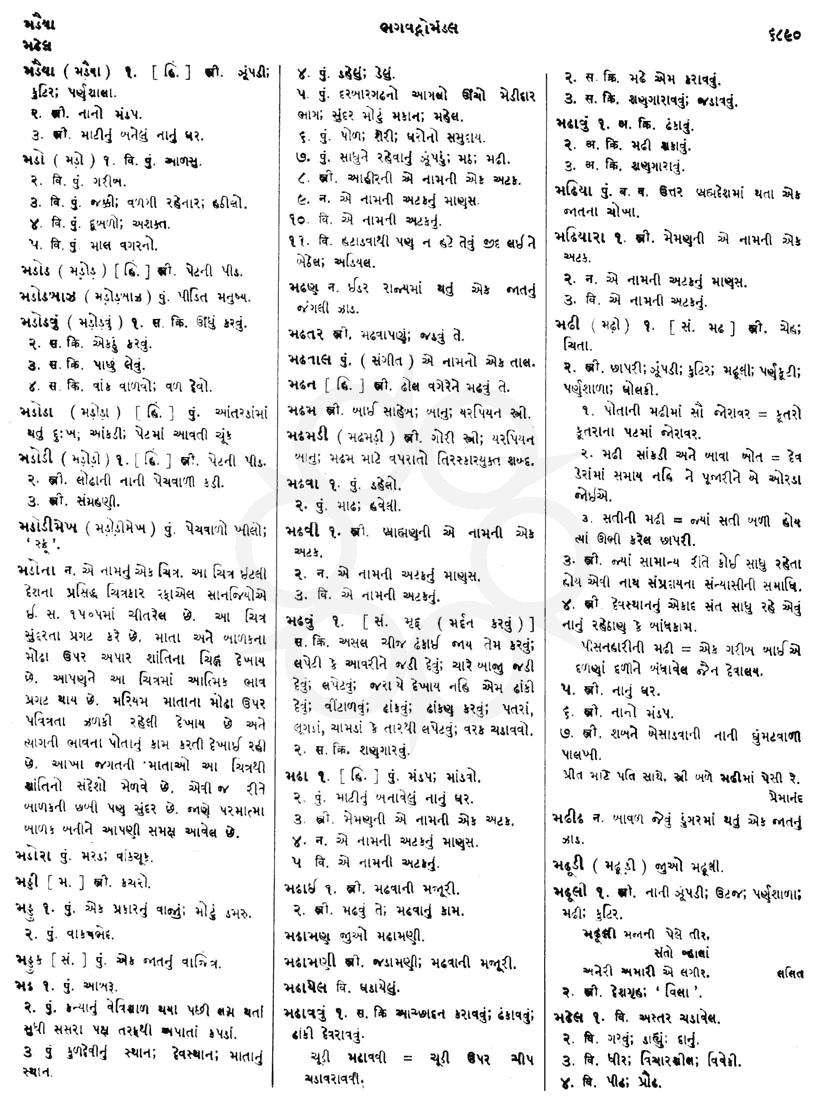 મડૈયા
મઢેલ
ભગવદ્ગોમંડલ
૬૮૯૦
મડૈયા ( મડૈયા ) ૧. [ હિં. ] સ્ત્રી. ઝૂંપડી;
કુટિર; પર્ણશાલા.
૨. સ્ત્રી. નાનો મંડપ.
૩. સ્ત્રી. માટીનું બનેલું નાનું ઘર.
મડો ( મડ઼ો ) ૧. વિ. પું. આળસુ.
૨. વિ. પું. ગરીબ.
૩. વિ. પું. જક્કી; વળગી રહેનાર; હઠીલો.
૪. વિ. પું. દૂબળો; અશક્ત.
૫. વિ. પું. માલ વગરનો.
મડોડ ( મડ઼ોડ઼ ) [ હિં. ] સ્ત્રી. પેટની પીડ.
મડોડબાઝ ( મડ઼ોડ઼બાઝ ) પું. પીડિત મનુષ્ય.
મડોડવું ( મડ઼ોડ઼વું ) ૧. સ. ક્રિ. ઊંધું કરવું.
૨. સ. ક્રિ. એકઠું કરવું.
૩. સ. ક્રિ. પાછું લેવું.
૪. સ. ક્રિ. વાંક વાળવો; વળ દેવો.
મડોડા ( મડ઼ોડ઼ા ) [ હિં. ] પું. આંતરડાંમાં
થતું દુઃખ; આંકડી; પેટમાં આવતી ચૂંક
મડોડી ( મડ઼ોડ઼ી ) ૧. [ હિં. ] સ્ત્રી. પેટની પીડ.
૨. સ્ત્રી. લોઢાની નાની પેચવાળી કડી.
૩. સ્ત્રી. સંગ્રહણી.
મડોડીમેખ ( મડ઼ોડ઼ીમેખ ) પું. પેચવાળો ખીલો;
‘ સ્ક્રૂ ’.
મડોના ન. એ નામનું એક ચિત્ર. આ ચિત્ર ઇટલી
દેશના પ્રસિદ્ધ ચિત્રકાર રફાએલ સાનજિયોએ
ઈ. સ. ૧૫૦૫માં ચીતરેલ છે. આ ચિત્ર
સુંદરતા પ્રગટ કરે છે. માતા અને બાળકના
મોઢા ઉપર અપાર શાંતિના ચિહ્ન દેખાય
છે. આપણને આ ચિત્રમાં આત્મિક ભાવ
પ્રગટ થાય છે. મરિયમ માતાના મોઢા ઉપર
પવિત્રતા ઝળકી રહેલી દેખાય છે અને
ત્યાગની ભાવના પોતાનું કામ કરતી દેખાઈ રહી
છે. આખા જગતની માતાઓ આ ચિત્રથી
શાંતિનો સંદેશો મેળવે છે. એવી જ રીતે
બાળકની છબી પણ સુંદર છે. જાણે પરમાત્મા
બાળક બનીને આપણી સમક્ષ આવેલ છે.
મડોરા પું. મરડ; વાંકચૂક.
મડ્ડી [ મ. ] સ્ત્રી. કચરો.
મડ્ડુ ૧. પું. એક પ્રકારનું વાજું; મોટું ડમરુ.
૨. પું. વાદ્યભેદ.
મડ્ડુક [ સં. ] પું. એક જાતનું વાજિંત્ર.
મઢ ૧. પું. આબરૂ.
૨. પું. કન્યાનું વેવિશાળ થયા પછી લગ્ન થતાં
સુધી સસરા પક્ષ તરફથી અપાતાં કપડાં.
૩ પું કુળદેવીનું સ્થાન; દેવસ્થાન; માતાનું
સ્થાન.
૪. પું. ડહેલું; ડેલું.
૫. પું. દરબારગઢનો આગલો ઊંચો મેડીદાર
ભાગ; સુંદર મોટું મકાન; મહેલ.
૬. પું. પોળ; શેરી; ઘરોનો સમુદાય.
૭. પું. સાધુને રહેવાનું ઝૂંપડું; મઠ; મઢી.
૮. સ્ત્રી. આહીરની એ નામની એક અટક.
૯. ન. એ નામની અટકનું માણસ.
૧૦. વિ. એ નામની અટકનું.
૧૧. વિ. હટાડવાથી પણ ન હટે તેવું જીદ લઈને
બેઠેલ; અડિયલ.
મઢણુ ન. ઇડર રાજ્યમાં થતું એક જાતનું
જંગલી ઝાડ.
મઢતર સ્ત્રી. મઢવાપણું; જડવું તે.
મઢતાલ પું. ( સંગીત ) એ નામનો એક તાલ.
મઢન [ હિં. ] સ્ત્રી. ઢોલ વગેરેને મઢવું તે.
મઢમ સ્ત્રી. બાઈ સાહેબ; બાનુ; યરપિયન સ્ત્રી.
મઢમડી ( મઢમડ઼ી ) સ્ત્રી. ગોરી સ્ત્રી; યરપિયન
બાનુ; મઢમ માટે વપરાતો તિરસ્કારયુક્ત શબ્દ.
મઢવા ૧. પું. ડહેલો.
૨. પું. માઢ; હવેલી.
મઢવી ૧. સ્ત્રી. બ્રાહ્મણની એ નામની એક
અટક.
૨. ન. એ નામની અટકનું માણસ.
૩. વિ. એ નામની અટકનું.
મઢવું ૧. [ સં. મૃદ્ ( મર્દન કરવું ) ]
સ. ક્રિ. અસલ ચીજ ઢંકાઈ જાય તેમ કરવું;
લપેટી કે આવરીને જડી દેવું; ચારે બાજુ જડી
દેવું; લપેટવું; જરા યે દેખાય નહિ એમ ઢાંકી
દેવું; વીંટાળવું; ઢાંકવું; ઢાંકણ કરવું; પતરાં,
લૂગડાં, ચામડાં કે તારથી લપેટવું; વરક ચડાવવો.
૨. સ. ક્રિ. શણગારવું.
મઢા ૧. [ હિં. ] પું. મંડપ; માંડવો.
૨. પું. માટીનું બનાવેલું નાનું ઘર.
૩. સ્ત્રી. મેમણની એ નામની એક અટક.
૪. ન. એ નામની અટકનું માણસ.
૫ વિ. એ નામની અટકનું.
મઢાઈ ૧. સ્ત્રી. મઢવાની મજૂરી.
૨. સ્ત્રી. મઢવું તે; મઢવાનું કામ.
મઢામણ જુઓ મઢામણી.
મઢામણી સ્ત્રી. જડામણી; મઢવાની મજૂરી.
મઢાયેલ વિ. ઘડાયેલું.
મઢાવવું ૧. સ. ક્રિ આચ્છાદન કરાવવું; ઢંકાવવું;
ઢાંકી દેવરાવવું.
ચૂડી મઢાવવી = ચૂડી ઉપર ચીપ
ચડાવરાવવી.
૨. સ. ક્રિ. મઢે એમ કરાવવું.
૩. સ. ક્રિ. શણગારાવવું; જડાવવું.
મઢાવું ૧. અ. ક્રિ. ઢંકાવું.
૨. અ. ક્રિ. મઢી શકાવું.
૩. અ. ક્રિ. શણગારાવું.
મઢિયા પું. બ. વ. ઉત્તર બ્રહ્મદેશમાં થતા એક
જાતના ચોખા.
મઢિયારા ૧. સ્ત્રી. મેમણની એ નામની એક
અટક.
૨. ન. એ નામની અટકનું માણસ.
૩. વિ. એ નામની અટકનું.
મઢી ( મઢ઼ી ) ૧. [ સં. મઠ ] સ્ત્રી. ચેહ;
ચિતા.
૨. સ્ત્રી. છાપરી; ઝૂંપડી; કુટિર; મઢૂલી; પર્ણકુટી;
પર્ણશાળા; ધોલકી.
૧. પોતાની મઢીમાં સૌ જોરાવર = કૂતરો
કૂતરાના પટમાં જોરાવર.
૨. મઢી સાંકડી અને બાવા બોત = દેવ
દેરાંમાં સમાય નહિ ને પૂજારીને બે ઓરડા
જોઈએ.
૩. સતીની મઢી = જ્યાં સતી બળી હોય
ત્યાં ઊભી કરેલ છાપરી.
૩. સ્ત્રી. જ્યાં સામાન્ય રીતે કોઈ સાધુ રહેતા
હોય એવી નાથ સંપ્રદાયના સંન્યાસીની સમાધિ.
૪. સ્ત્રી. દેવસ્થાનનું એકાદ સંત સાધુ રહે એવું
નાનું રહેઠાણ કે બાંધકામ.
પીસનહારીની મઢી = એક ગરીબ બાઈએ
દળણાં દળીને બંધાવેલ જૈન દેવાલય.
૫. સ્ત્રી. નાનું ઘર.
૬. સ્ત્રી. નાનો મંડપ.
૭. સ્ત્રી. શબને બેસાડવાની નાની ઘુંમટવાળી
પાલખી.
પ્રીત માટે પતિ સાથે, સ્ત્રી બળે મઢીમાં પેસી રે.
પ્રેમાનંદ
મઢીઢ ન. બાવળ જેવું ડુંગરમાં થતું એક જાતનું
ઝાડ.
મઢૂડી ( મઢૂડ઼ી ) જુઓ મઢૂલી.
મઢૂલી ૧. સ્ત્રી. નાની ઝૂંપડી; ઉટજ; પર્ણશાળા;
મઢી; કુટિર.
મઢૂલી મજાની પેલે તીર,
સંતો વ્હાલા
અનેરી અમારી એ લગીર.
લલિત
૨. સ્ત્રી. દેશગૃહ; ‘ વિલા ’.
મઢેલ ૧. વિ. અસ્તર ચડાવેલ.
૨. વિ. ગરવું; ડાહ્યું; દાનું.
૩. વિ. ધીર; વિચારશીલ; વિવેકી.
૪. વિ. પીઢ; પ્રૌઢ.